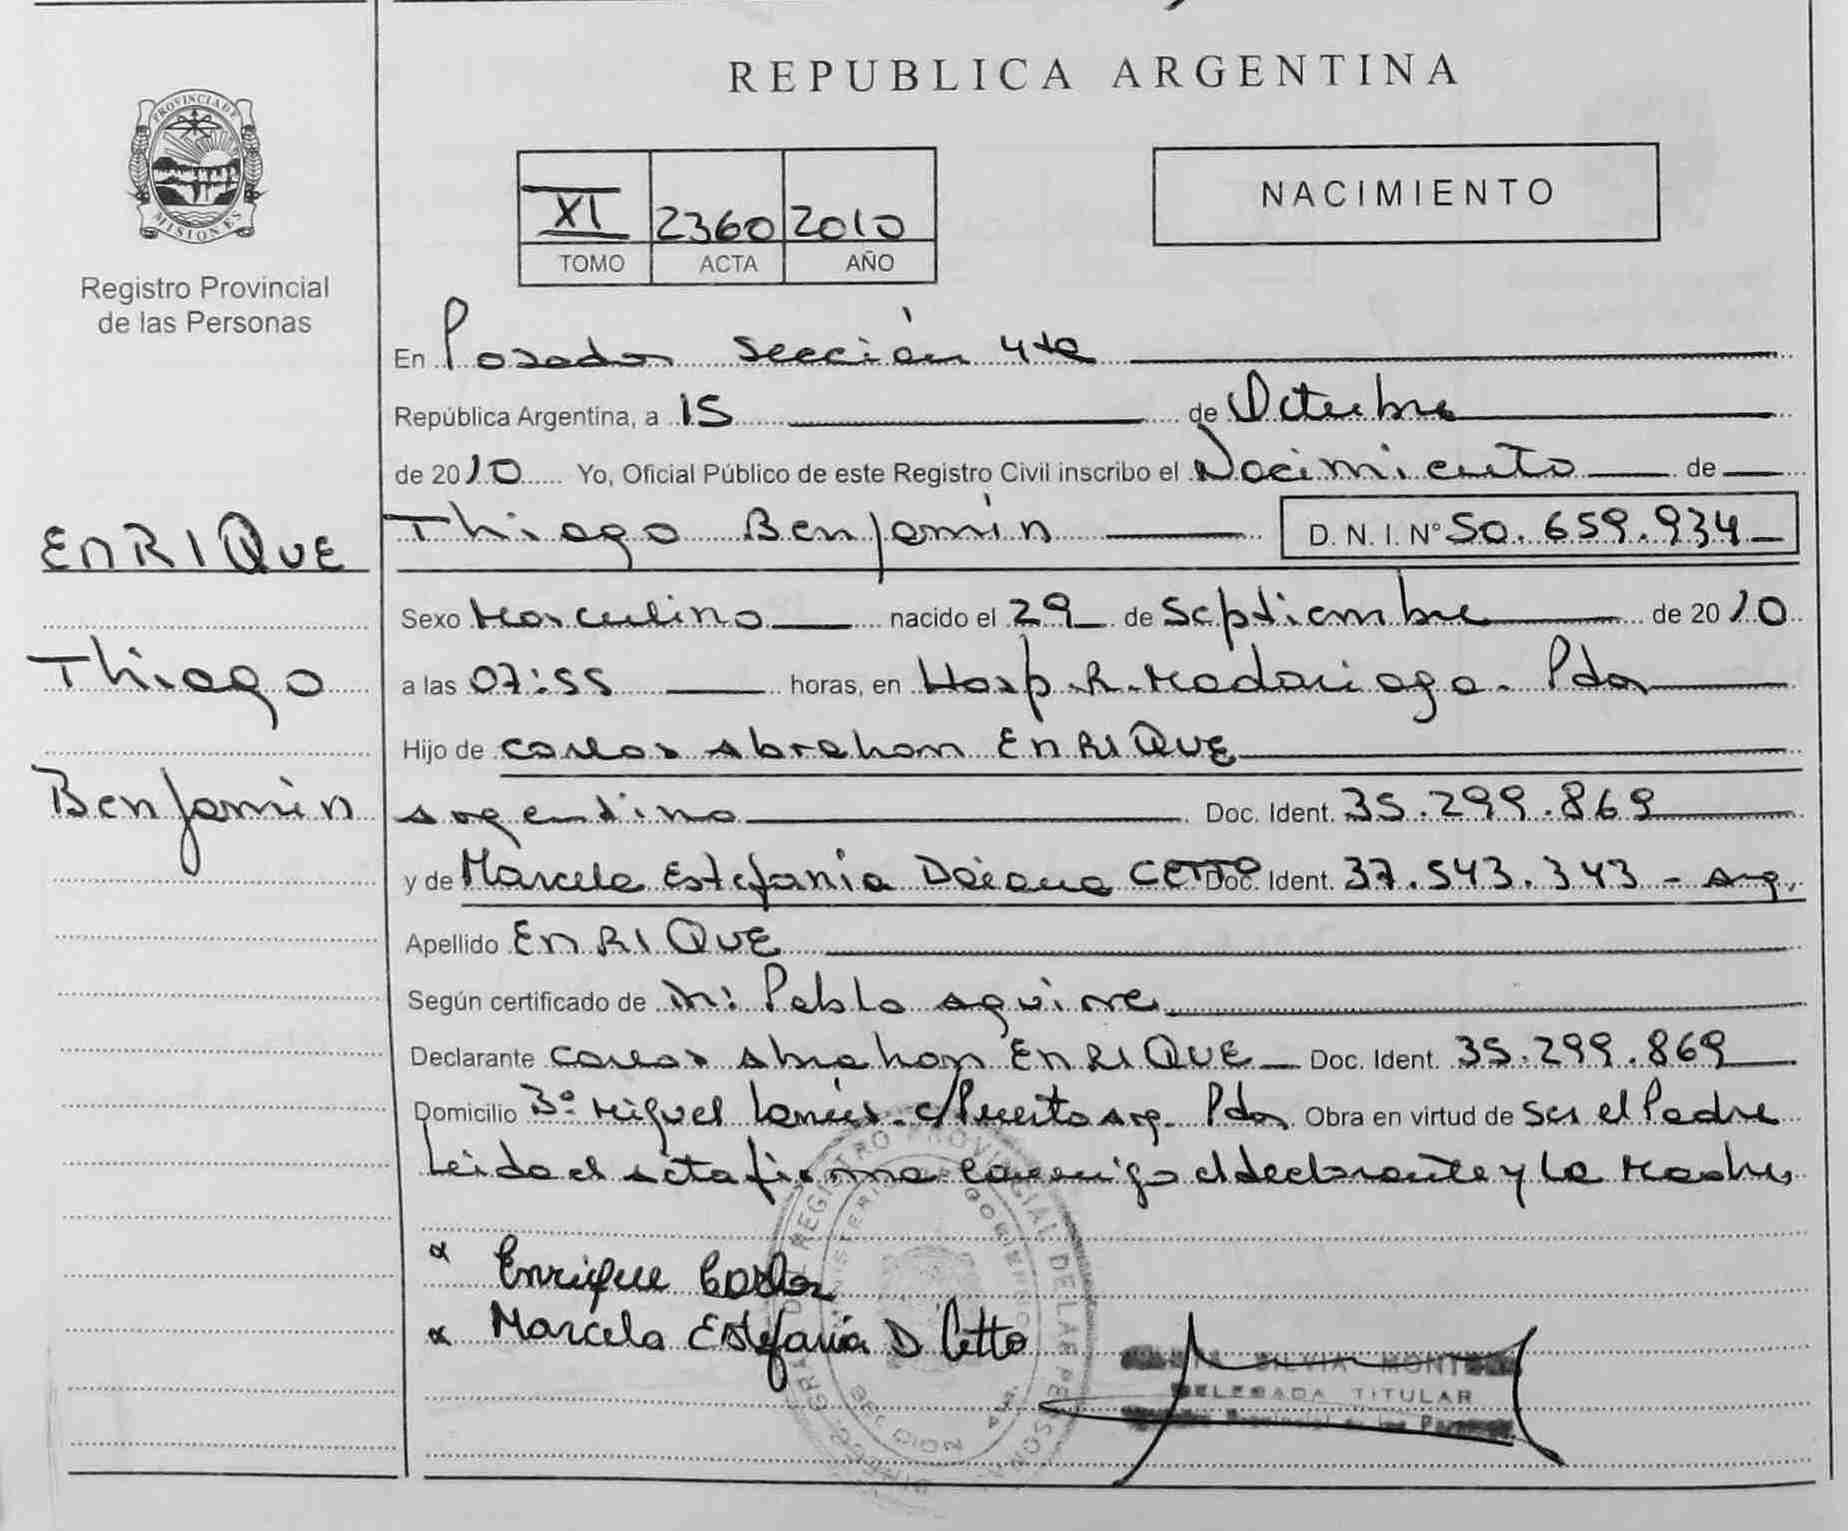 REPUBLICA ARGENTINA
PROVINCIA DE
MISIONES
Registro Provincial
de las Personas
XI 2360 2010
TOMO ACTA AÑO
NACIMIENTO
En Posadas Sección 4ta
República Argentina, a 15 de Octubre
de 2010 Yo, Oficial Público de este Registro Civil inscribo el Nacimiento de
Thiago Benjamín D. N. I. N° 50.659.934
Sexo Masculino nacido el 29 de Septiembre de 2010
a las 07:55 horas, en Hosp. R. Madariaga. Pdas
Hijo de Carlos Abraham ENRIQUE
Argentino Doc. Ident. 35.299.869
y de Marcela Estefanía Daiana CETTO Doc. Ident. 37.543.343 - Arg.
Apellido ENRIQUE
Según certificado de Dr: Pablo Aguirre
Declarante Carlos Abraham ENRIQUE Doc. Ident. 35.299.869
Domicilio Bº Miguel Lanús. c/Puerto Arg. Pdas Obra en virtud de ser el Padre
Leida el acta firma conmigo el declarante y la Madre
Enrique Carlos
Marcela Estefanía D Cetto
SILVIA
DELEGADA TITULAR
REGISTRO PROVINCIAL DE LAS PERSONAS
ENRIQUE
Thiago
Benjamín